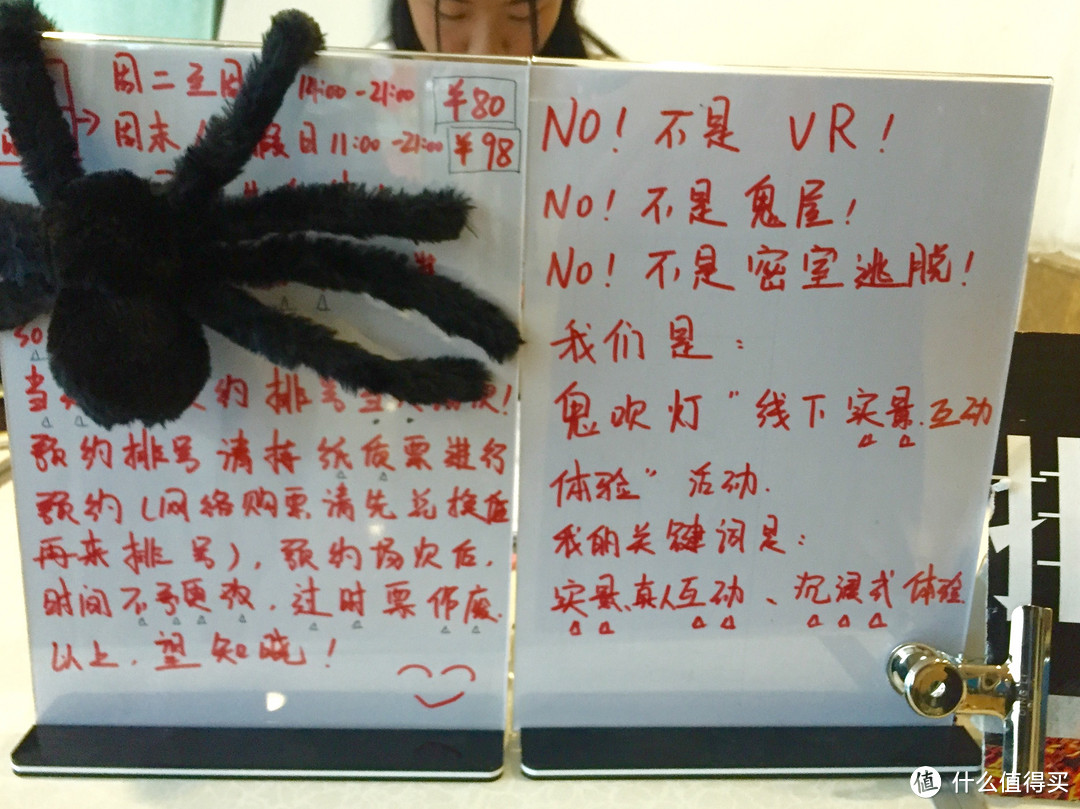 周二至周 14:00-21:00 ¥80
周末 假日11:00-21:00 ¥98
当 约排号当
预约排号请持纸质票进行
预约(网络购票请先兑换后
再来排号),预约场次后,
时间不予更改,过时票作废.
以上,望知晓!
NO!不是 VR!
NO!不是鬼屋!
NO!不是密室逃脱!
我们是:
鬼吹灯"线下实景互动
体验"活动.
我的关键词是:
实景、真人互动、沉浸式体验
值 什么值得买